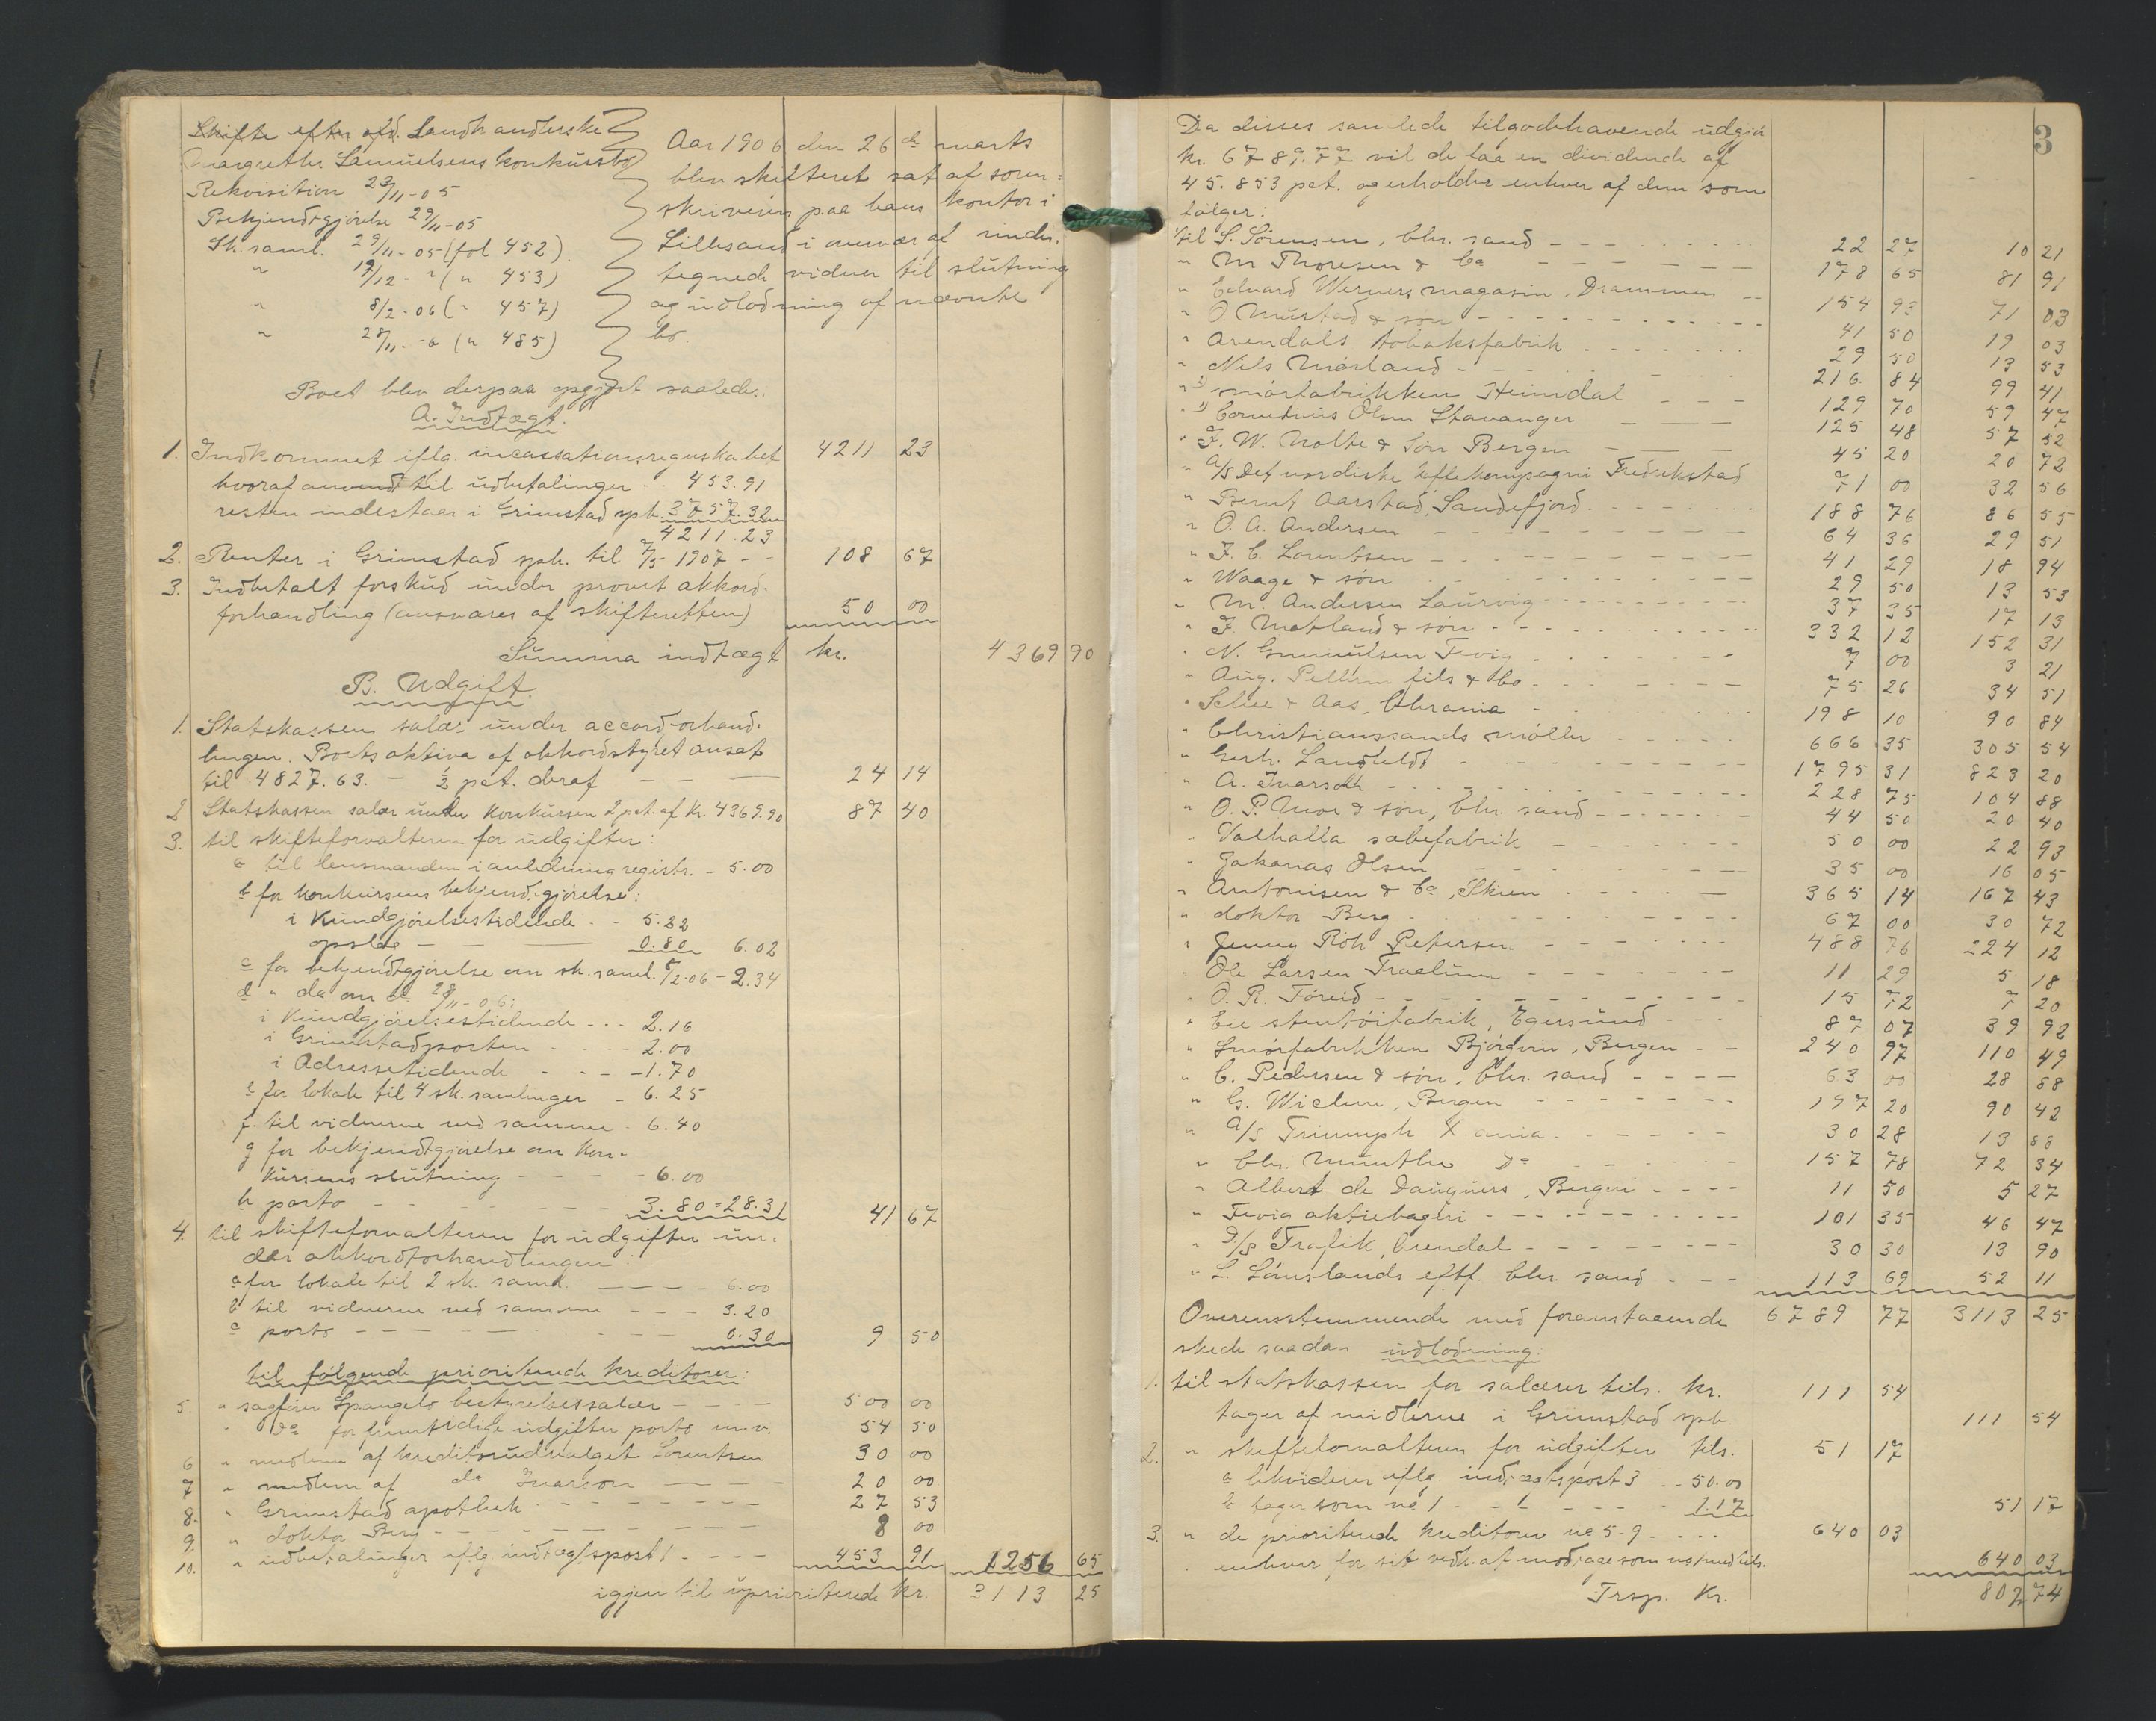 Skifte efter afd. Landhandlerske
Margrethe Samuelsens konkursbo
Rekvisition 23/11-05
Bekjendtgjørelse 29/11-05
Sk. saml. 29/11-05 (fol 452).
" 19/12 - " ( " 453)
" 8/2-06 ( " 457)
" 28/11.-6 ( " 485)
Aar 1906 den 26de marts
blev skifteret sat af soren-
skriveren paa hans kontor i
Lillesand i overvær af under-
tegnede vidner til slutning
og udlodning af nævnte
bo.
Boet blev derpaa opgjort saaledes:
A. Indtægt.
1. Indkommet iflg. incassationsregnskabet 4211 23
hvoraf anvendt til udbetalinger - 453.91
resten indestaar i Grimstad spb. 3757.32
4211.23
2. Renter i Grimstad spb. til 7/5 1907 - - 108 67
3. Indbetalt forskud under prøvet akkord-
forhandling (ansvares af skifteretten) 50 00
Summa indtægt kr. 4369 90
B. Udgift.
1. Statskassen salær under accordforhand-
lingen. Boets aktiva af akkordstyret ansat
til 4827.63. - ½ pct. deraf - - - 24 14
2 Statskassen salær under konkursen 2 pct. af kr. 4369.90 87 40
3. til skifteforvalteren for udgifter:
a til lensmanden i anledning registr. - 5.00
b for konkursens bekjendtgjørelse:
i Kundgjørelsestidende - - 5.22
opslag - - - 0.80 6.02
c for bekjendtgjørelse om sk. saml. 8/2-06 - 2.34
d " do om do 28/11-06:
i Kundgjørelsestidende - - - 2.16
i Grimstadposten - - - 2.00
i Adressetidende - - - 1.70
e for lokale til 4 sk. samlinger - 6.25
f. til vidnerne ved samme - 6.40
g for bekjendtgjørelse om kon-
kursens slutning - - - - 6.00
h porto - - - - 3.80 = 28.31 41 67
4. til skifteforvalteren for udgifter un-
der akkordforhandlingen:
a for lokale til 2 sk. saml. - - - 6.00
b til vidnerne ved samme - - - 3.20
c porto - - - - 0.30 9 50
til følgende prioriterede kreditorer:
5. " sagfører Spangelo bestyrelsessalær - - - 500 00
" do for fremtidige udgifter porto m.v. 54 50
6 " medlem af kreditorudvalget Lorentsen 30 00
7 " medlem af do Ivarson - - - 20 00
8. " Grimstad apothek - - - 27 53
9. " doktor Berg - - - 8 00
10. " udbetalinger iflg. indtægtspost 1 - - - 453 91 1256 65
igjen til uprioriterede kr. 3113 25
3
Da disses samlede tilgodehavende udgjør
kr. 6789.77 vil de faa en dividende af
45.853 pct. og erholder enhver af dem som
følger:
til S. Sørensen, Chr. sand - - - 22 27 10 21
" M Thoresen & Co - - - 178 65 81 91
" Edvard Werners magasin, Drammen - - 154 93 71 03
" O. Mustad & søn - - - 41 50 19 03
" Arendals tobaksfabrik - - - 29 50 13 53
" Nils Mørland - - - 216 84 99 41
" Smørfabrikken Heimdal - - - 129 70 59 47
" Cornelius Olsen Stavanger - - - 125 48 57 52
" F. W. Nolte & Søn Bergen - - - 45 20 20 72
" A/S Det nordiske kaffekompagni Fredrikstad 71 00 32 56
" Bernt Aarstad, Sandefjord - - - 188 76 86 55
" O. A. Andersen - - - 64 36 29 51
" J. C. Lorentsen - - - 41 29 18 94
" Waage & søn - - - 29 50 13 53
" M. Andersen Laurvig - - - 37 35 17 13
" F. Motland & søn - - - 332 12 152 31
" N. Gunnulsen Fevig - - - 7 00 3 21
" Aug. Pellerin fils & Co - - - 75 26 34 51
" Schee & Aas, Chrania - - - 198 10 90 84
" Christianssands møller - - - 666 35 305 54
" Gerh. Landfeldt - - - 1795 31 823 20
" A. Ivarson - - - 228 75 104 88
" O. P. Moe & søn, Chr. sand - - - 44 50 20 40
" Valhalla sæbefabrik - - - 50 00 22 93
" Jakanas Olsen - - - 35 00 16 05
" Antonisen & Co, Skien - - - 365 14 167 43
" doktor Berg - - - 67 00 30 72
" Jenny Röh Petersen - - - 488 76 224 12
" Ole Larsen Traelum - - - 11 29 5 18
" O. R. Föreid - - - 15 72 7 20
" Eie stentøifabrik, Egersund - - - 87 07 39 92
" Smørfabrikken Bjørdvin, Bergen - - 240 97 110 49
" C. Pedersen & søn, Chr. sand - - - 63 00 28 88
" G. Wiclene, Bergen - - - 197 20 90 42
" A/S Triumph X ania - - - 30 28 13 88
" Chr. Munthe Do - - - 157 78 72 34
" Albert de Jauquers, Bergen - - - 11 50 5 27
" Fevig aktiebageri - - - 101 35 46 47
" D/S Trafik, Arendal - - - 30 30 13 90
" L. Lønslands eftf. Chr. sand - - - 113 69 52 11
Overensstemmende med foranstaaende 6789 77 3113 25
skede saadan udlodning:
1. til statskassen for salærer tils. kr. 111 54
tager af midlerne i Grimstad spb 111 54
2. " skifteforvalteren for udgifter tils. 51 17
a likviderer iflg. indtægtspost 3 - - 50.00
b tager som no 1 - - - 1.17 51 17
3. " de prioriterede kreditorer no 5-9 - - - 640 03
enhver for sit vedk. af modtage som no 1 med tils. 640 03
Trsp. Kr. 802 74